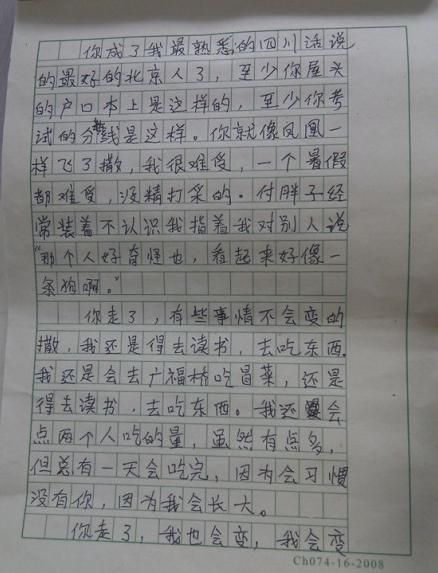 你成了我最熟悉的四川话说
的最好的北京人了，至少你屋头
的户口本上是这样的，至少你考
试的分数线是这样。你就像凤凰一
样飞了撒，我很难受，一个暑假
都难受，没精打采的．付胖子经
常装着不认识我指着我对别人说
“那个人好奇怪也，看起来好像一
条狗啊。”
你走了，有些事情不会变的
撒，我还是得去读书，去吃东西。
我还是会去广福桥吃冒菜，还是
得去读书，去吃东西。我还会
点两个人吃的量，虽然有点多，
但总有一天会吃完，因为会习惯
没有你，因为我会长大。
你走了，我也会变，我会变
Ch074-16-2008